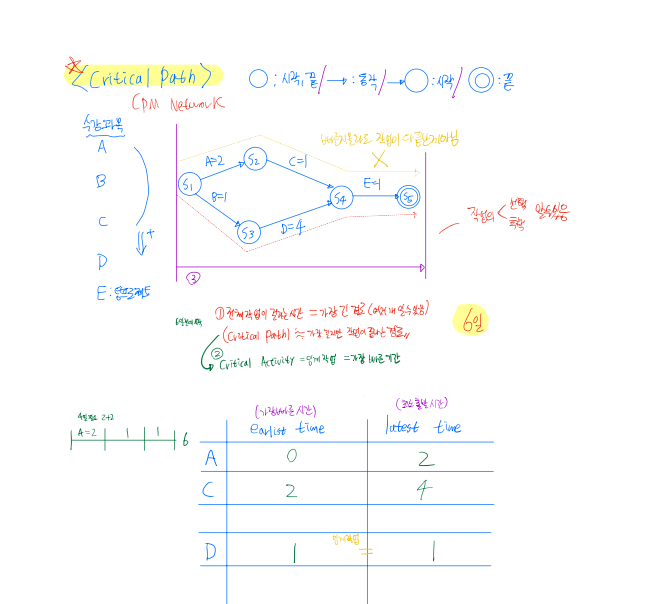 <Critical Path>
○ ; 시작, 끝 / → : 동작 / → ○ : 시작 / ◎ : 끝
CPM Network
수강과목
A
B
C
D
E :
+
빠른지름길로 작업이 다 끝난게아님
A=2
S2
C=1
S1
B=1
S4
E=1
S5
S3
D=4
③
작업의 < 선행 후행 알수있음
① 전체작업이 끝나는시간 = 가장 긴 경로 (여러개 일수있음)
(Critical Path) ≒ 가장 길지만 작업이 끝나는 경로
6일
② Critical Activity = 임계작업 = 가장 빠른기간
2+2
A=2 1 1 6
(가장빠른 시간) 
earlist time latest time
A 0 2
C 2 4
임계작업
D 1 = 1